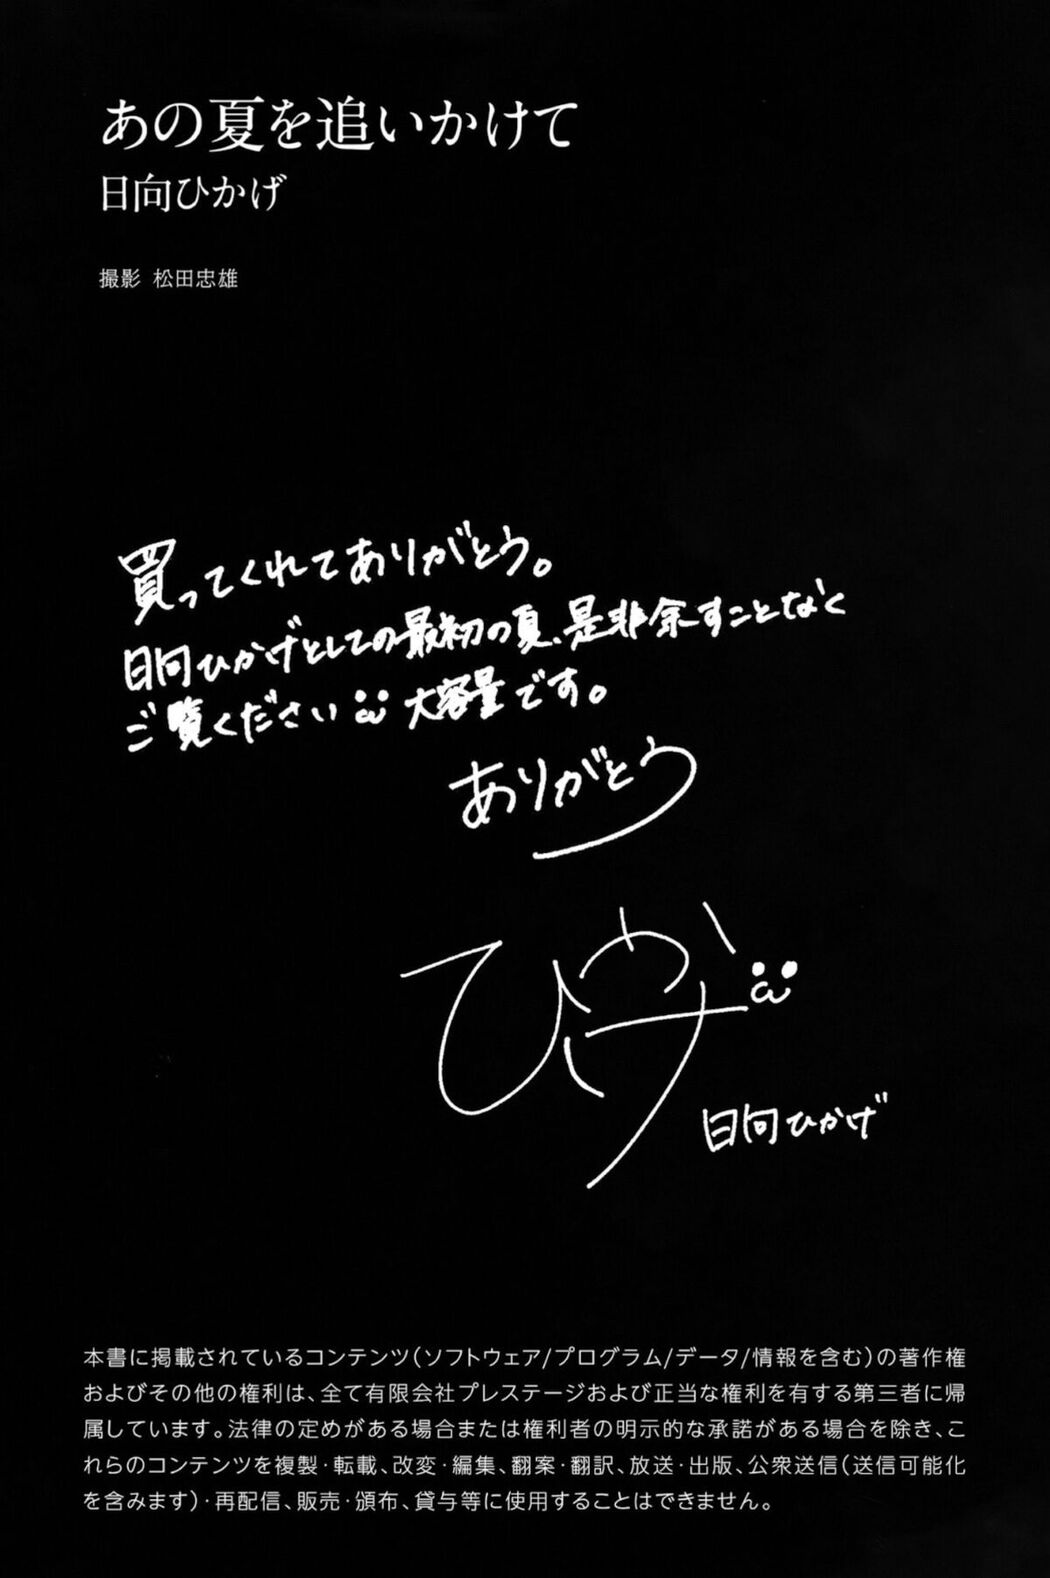 あの夏を追いかけて
日向ひかげ
撮影 松田忠雄
買ってくれてありがとう。
日向ひかげとしての最初の夏、是非余すことなく
ご覧ください 大容量です。
ありがとう
ひかげ
日向ひかげ
本書に掲載されているコンテンツ(ソフトウェア/プログラム/データ/情報を含む)の著作権
およびその他の権利は、全て有限会社プレステージおよび正当な権利を有する第三者に帰
属しています。法律の定めがある場合または権利者の明示的な承諾がある場合を除き、こ
れらのコンテンツを複製・転載、改変・編集、翻案・翻訳、放送・出版、公衆送信(送信可能化
を含みます)・再配信、販売・頒布、貸与等に使用することはできません。